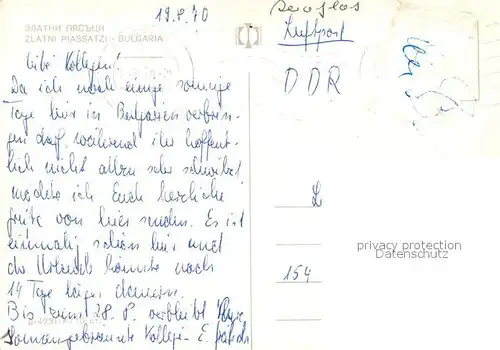 19.8.70
ЗЛАТНИ ПЯСЪЦИ
ZLATNI PIASSATZI - BULGARIA
Liebe Kollegen!
Da ich noch einige sonnige
Tage hier in Bulgarien verbrin-
gen darf, während ihr hoffent-
lich nicht allzu sehr schwitzt
möchte ich Euch herzliche
Grüße von hier senden. Es ist
einmalig schön hier und
der Urlaub könnte noch
14 Tage länger dauern.
Bis zum 28. 8. verbleibt Eure
sonnengebräunte Kollegin E.
Luftpost
DDR
154
privacy protection
Datenschutz